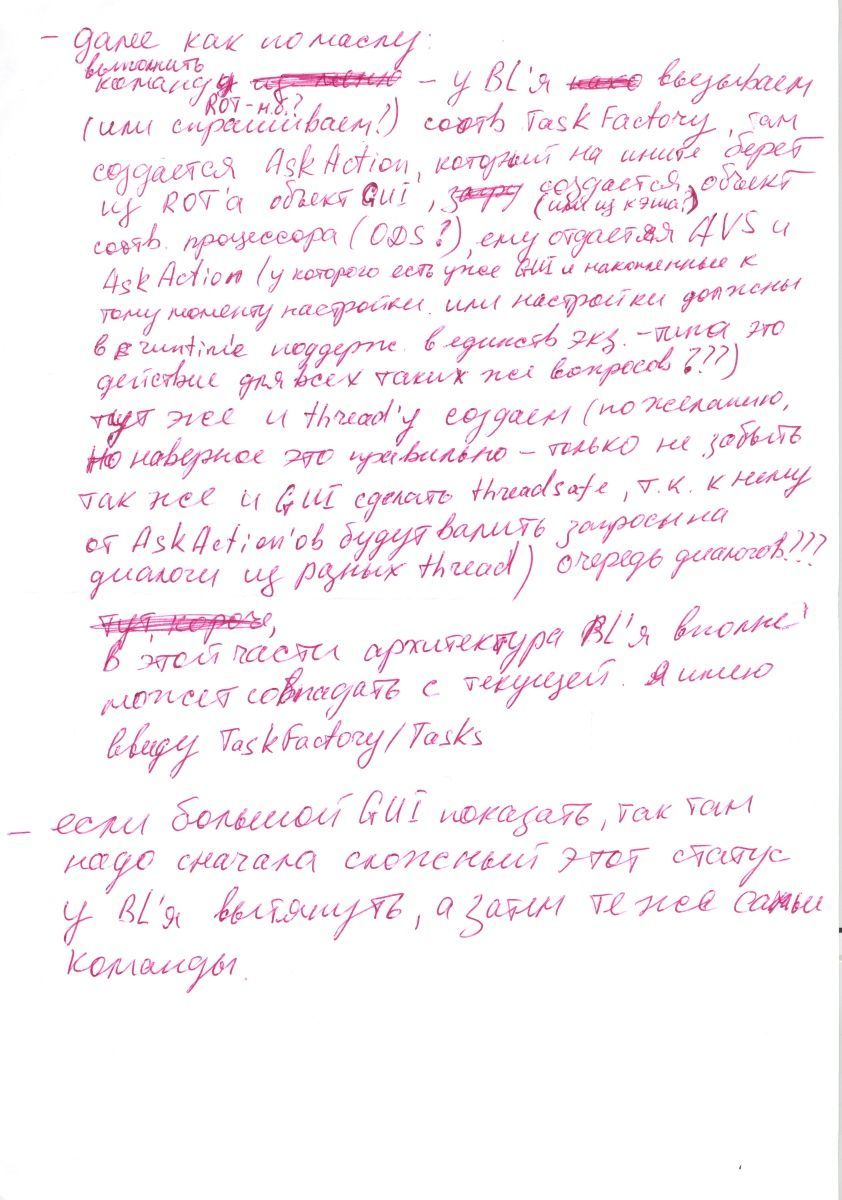 – далее как по маслу:
выполнить
команду из меню – у BL'я како вызываем
ROT – м.б.?
(или спрашиваем!) соотв. TaskFactory, там
создается AskAction, который на ините берет
из ROT'а объект GUI, создается объект
(или из кэша?)
соотв. процессора (ODS?), ему отдается AVS и
AskAction (у которого есть уже GUI и накопленные к
тому моменту настройки. или настройки должны
в runtim'е поддерж. в единств экз. – типа это
действие для всех таких же вопросов???)
тут же и thread'у создаем (по желанию,
но наверное это правильно – только не забыть
так же и GUI сделать threadsafe, т.к. к нему
от AskAction'ов будут валить запросы на
диалоги из разных thread) очередь диалогов???
тут, короче,
в этой части архитектура BL'я вполне
может совпадать с текущей. Я имею
ввиду TaskFactory/Tasks
– если большой GUI показать, так там
надо сначала сложный этот статус
у BL'я вытянуть, а затем те же самые
команды.